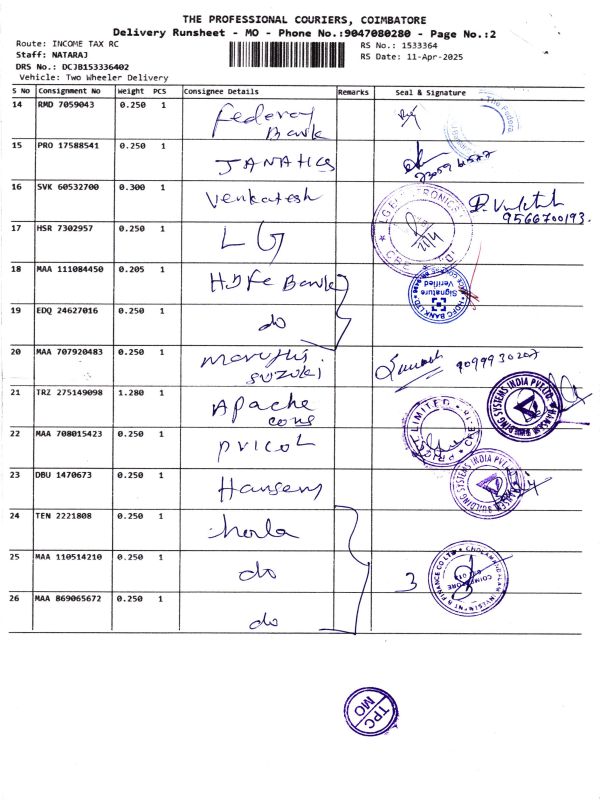 THE PROFESSIONAL COURIERS, COIMBATORE
Delivery Runsheet - MO - Phone No.:9047080280 - Page No.:2
Route: INCOME TAX RC
RS No.: 1533364
Staff: NATARAJ
RS Date: 11-Apr-2025
DRS No.: DCJB153336402
Vehicle: Two Wheeler Delivery
S No Consignment No Weight PCS Consignee Details Remarks Seal & Signature
14 RMD 7059043 0.250 1 Federal Bank
The Federa
15 PRO 17588541 0.250 1 JANATICS
16 SVK 60532700 0.300 1 Venkatesh
9566700193.
17 HSR 7302957 0.250 1 LG
18 MAA 111084450 0.205 1 HDFC Bank
HDFC BANK LTD
Signature Verified
19 EDQ 24627016 0.250 1 do
20 MAA 707920483 0.250 1 Maruthi Suzuki
9099930207
21 TRZ 275149098 1.280 1 Apache cons
22 MAA 708015423 0.250 1 PRICOL
LIMITED
23 DBU 1470673 0.250 1 Hansen
BUILDING SYSTEMS INDIA PVT LTD
24 TEN 2221808 0.250 1 chola
25 MAA 110514210 0.250 1 do
3
CHOLAMANDALAM INVESTMENT & FINANCE CO LTD
COIMBATORE
26 MAA 869065672 0.250 1 do
TPC
MO